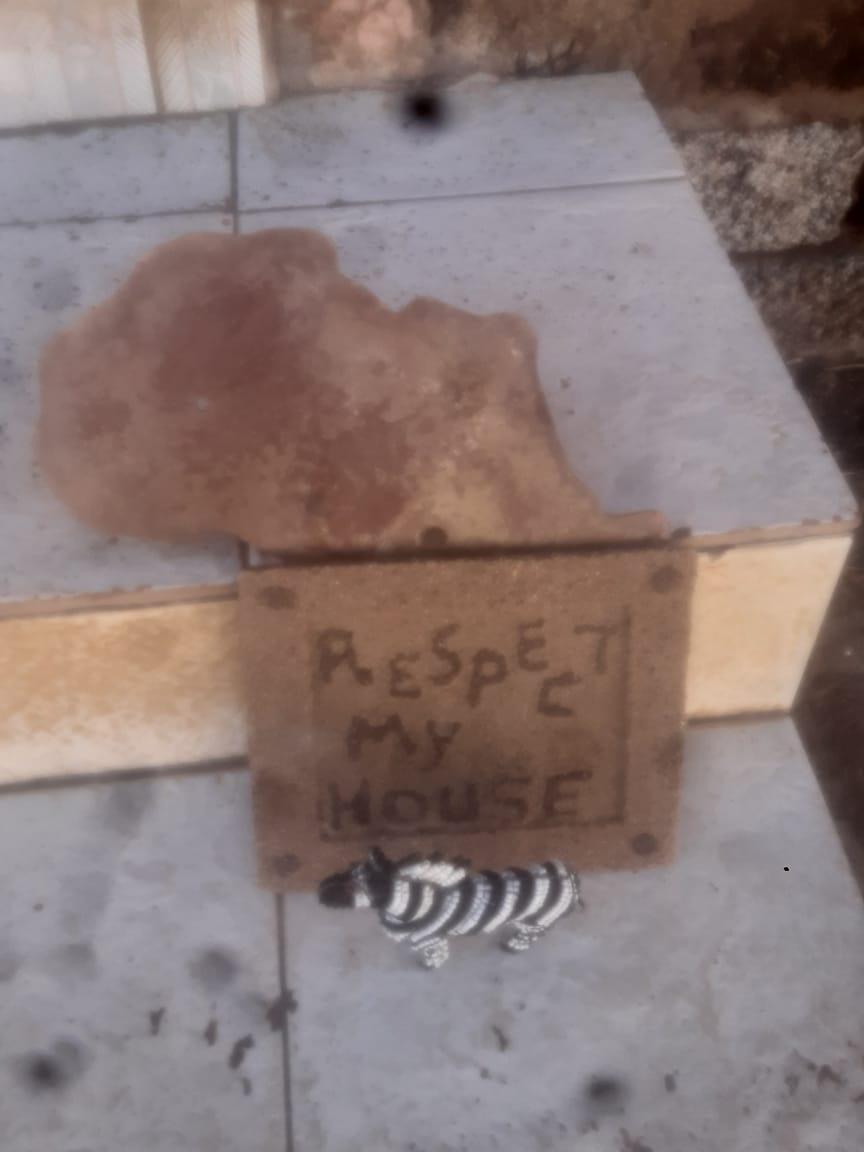 RESPECT
My
HOUSE